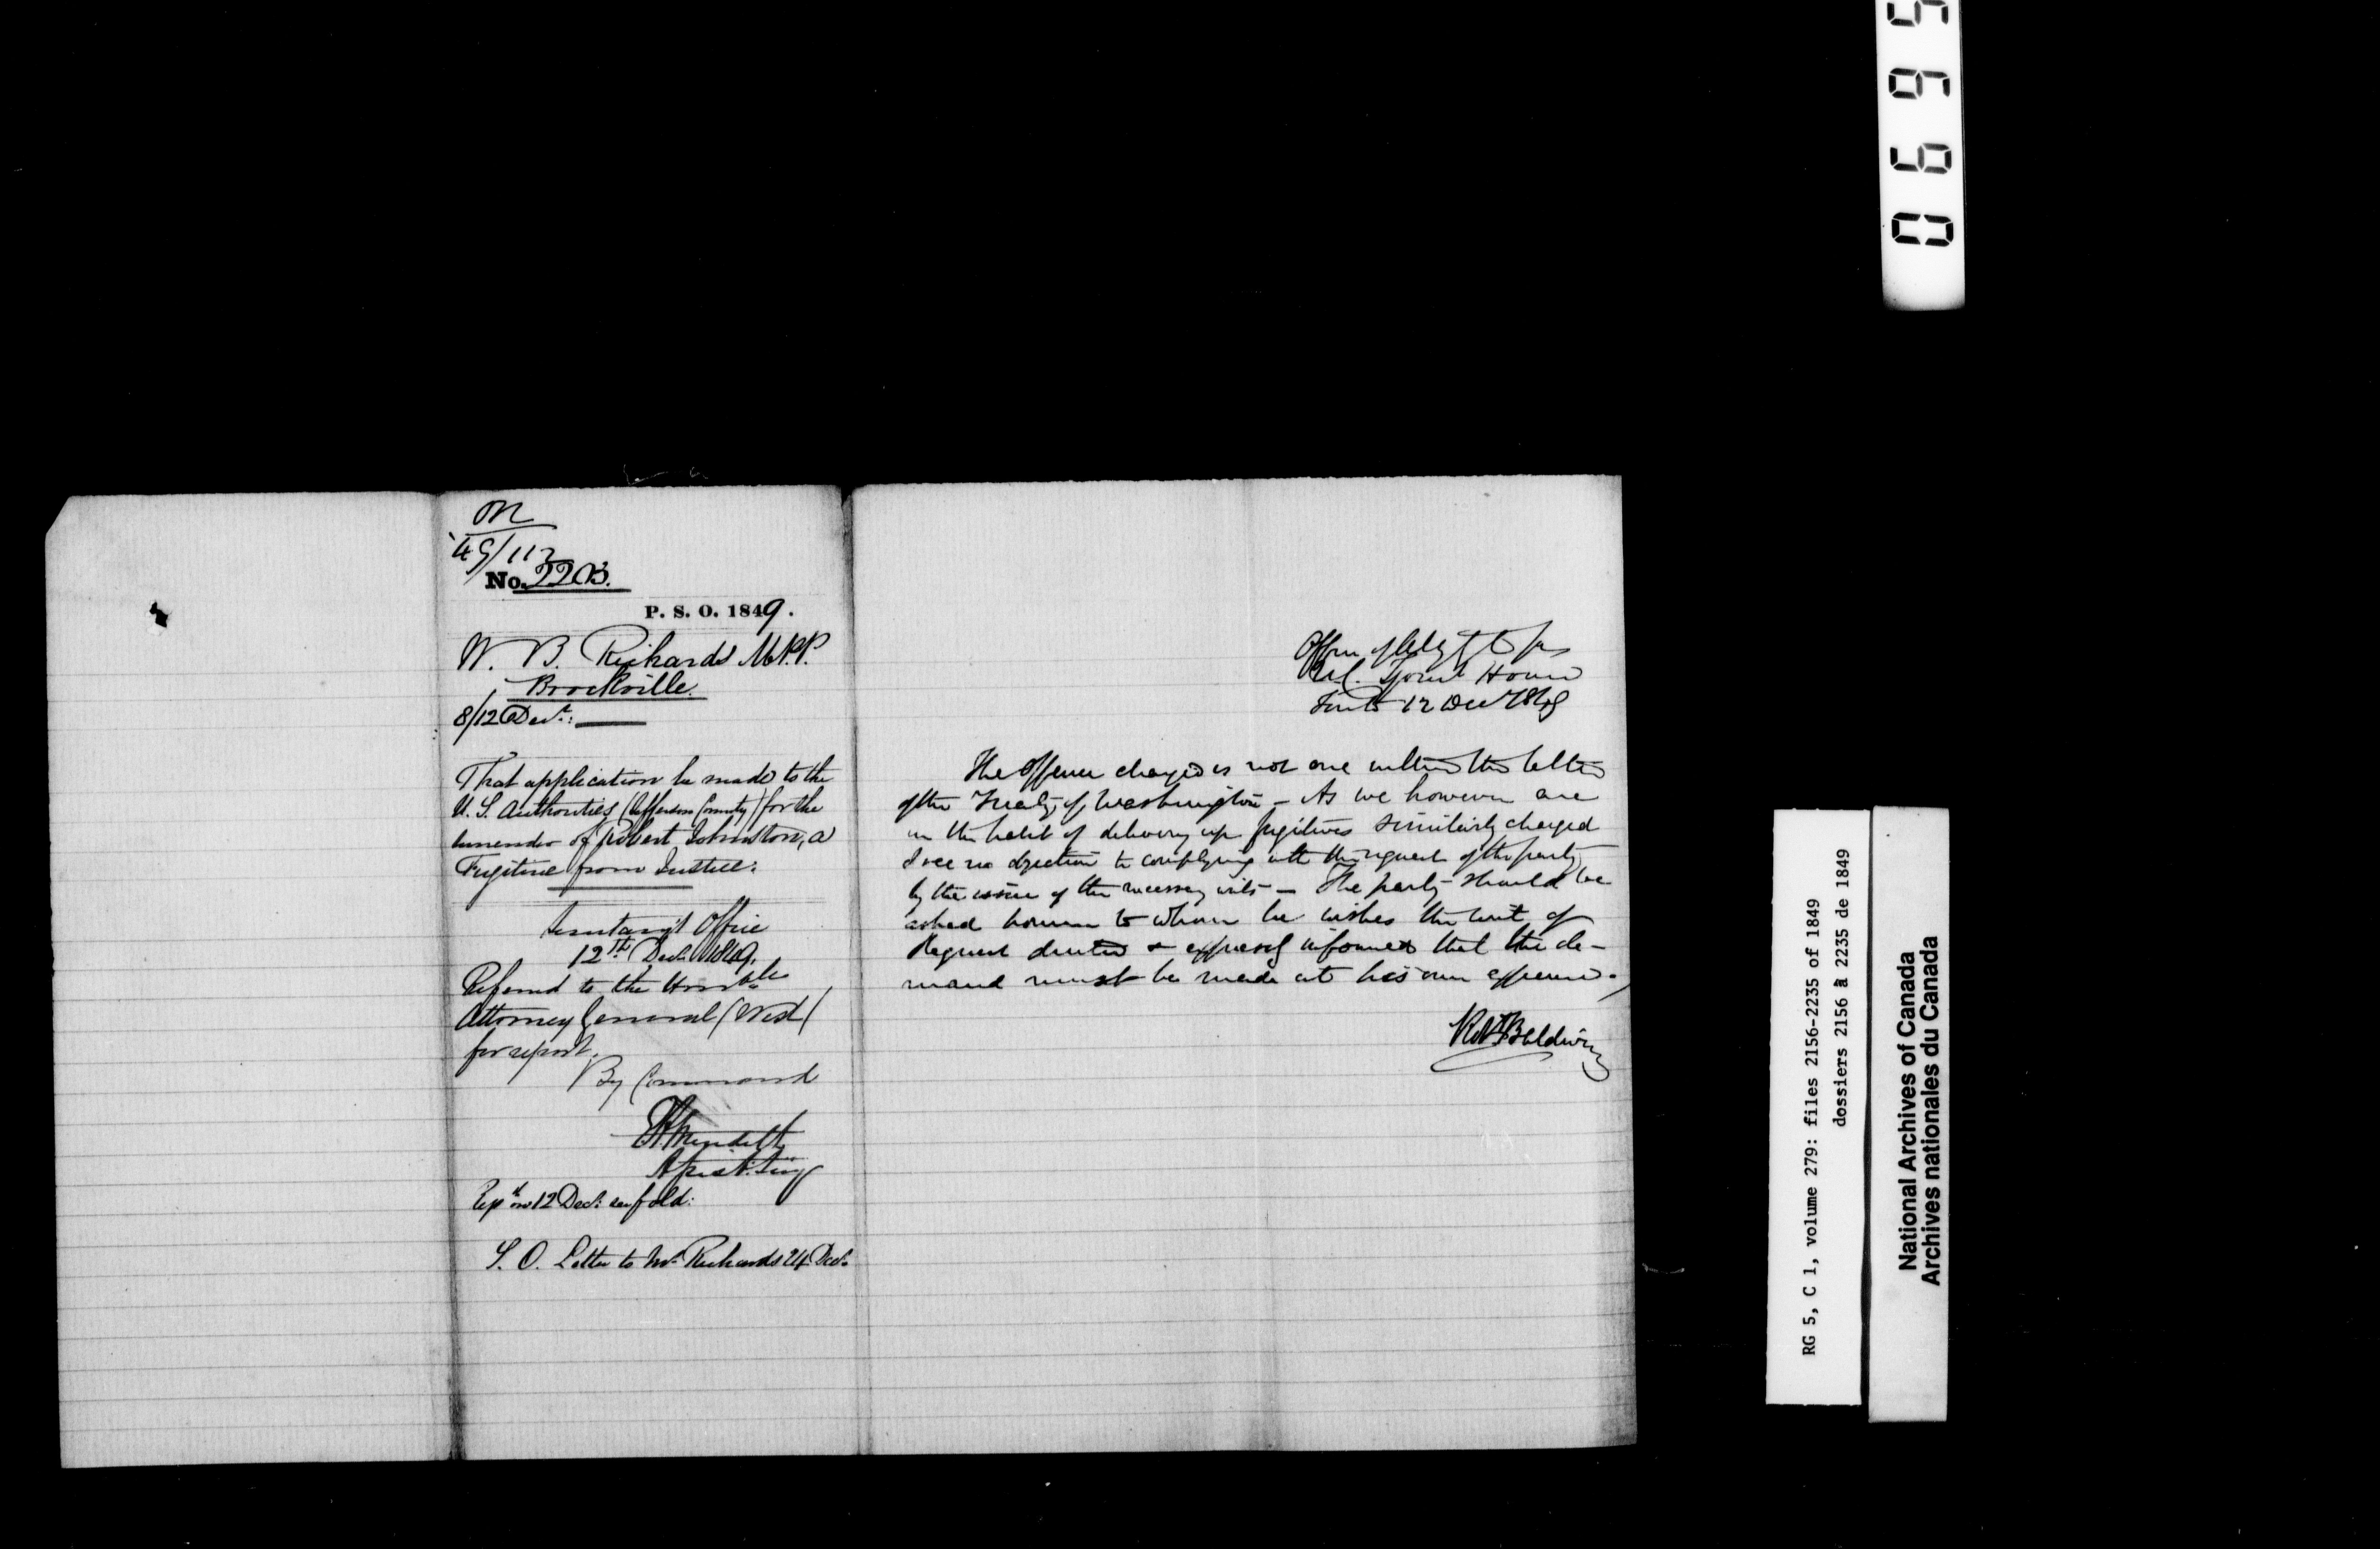 M
49/112
No. 2203.
P. S. O. 1849.
W. B. Richards M.P.P.
Brockville.
8/12 Decr.:
That application be made to the
U. S. Authorities (Jefferson County) for the
surrender of Robert Johnston, a
Fugitive from Justice.
Secretary's Office
12th Decr. 1849.
Referred to the Honble
Attorney General (West)
for report.
By Command
E A Meredith
Assist. Secy
Repd on 12 Decr. enfold:
S. O. Letter to Mr. Richards 24 Decr.
Office of Atty
U.C. House
12 Decr 1849
The offence charged is not one within the letter
of the Treaty of Washington – As we however are
in the habit of delivering up fugitives similarly charged
I see no objection to complying with the request of the party
by the issue of the necessary writs – The party should be
asked however to whom he wishes the writ of
Request directed & expressly informed that the de-
mand must be made at his own expense.
Robt Baldwin
0695
RG 5, C 1, volume 279: files 2156-2235 of 1849
dossiers 2156 à 2235 de 1849
National Archives of Canada
Archives nationales du Canada